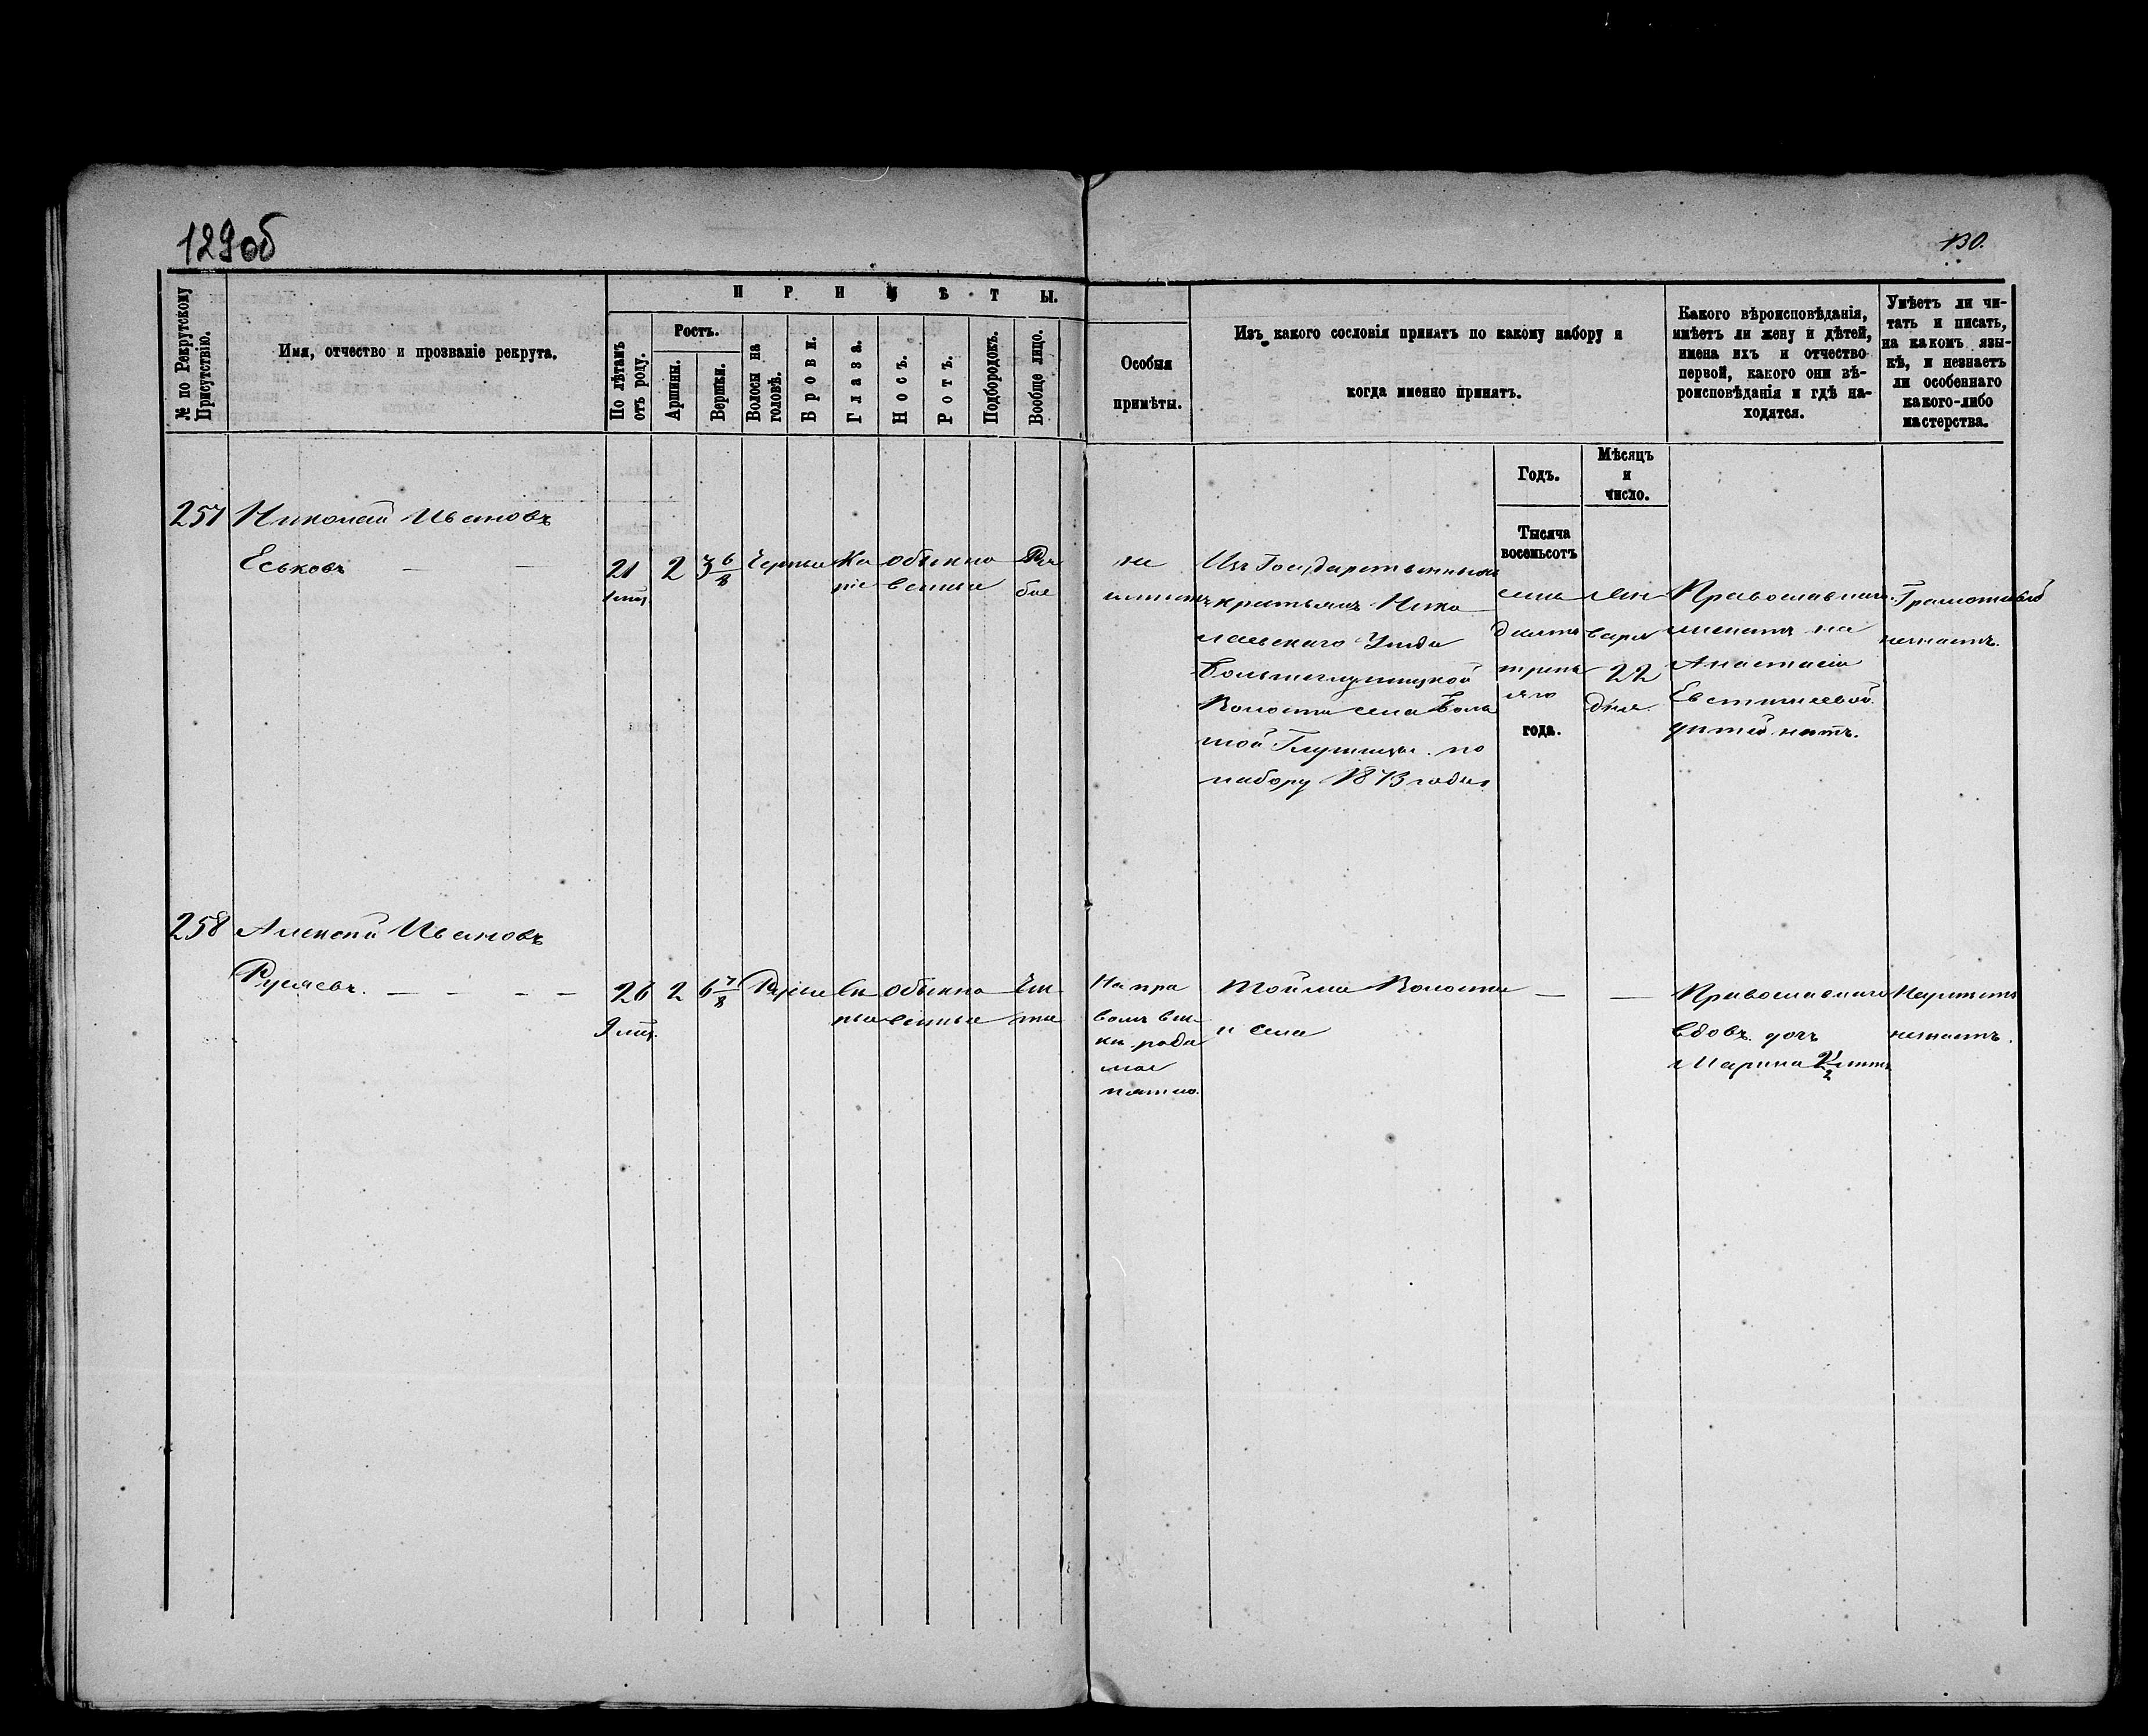 129об
130.
№ по Рекрутскому Присутствію.
Имя, отчество и прозваніе рекрута.
ПРИМѢТЫ.
По лѣтамъ отъ роду.
Ростъ.
Аршины.
Вершки.
Волосы на головѣ.
Брови.
Глаза.
Носъ.
Ротъ.
Подбородокъ.
Вообще лицо.
Особыя
примѣты.
Изъ какого сословія принятъ по какому набору и
когда именно принятъ.
Какого вѣроисповѣданія,
имѣетъ ли жену и дѣтей,
имена ихъ и отчество
первой, какого они вѣ-
роисповѣданія и гдѣ на-
ходятся.
Умѣетъ ли чи-
тать и писать,
на какомъ язы-
кѣ, и незнаетъ
ли особеннаго
какого-либо
мастерства.
Годъ.
Мѣсяцъ
и
число.
Тысяча
восемьсотъ
257 Николай Ивановъ
Еськовъ — —
21
2 3 6/8
Черные
Ка
ріе
обыкно
венные
Ря
бое
не
имѣетъ
Изъ Государственныхъ
крестьянъ Нико
лаевскаго Уѣзда
Большеглушицкой
Волости села Боль
шой Глушицы по
набору 1873 года
семь
десятъ
треть
яго
года.
Ян
варя
22
дня
Православнаго
женатъ на
Анастасіи
Евстигнеевой
дѣтей нѣтъ.
Грамотѣ
незнаетъ.
258 Алексѣй Ивановъ
Русяевъ. — — — —
26
9 мѣц.
2 6 7/8
Русые
обыкно
венные
Чи
стое
На пра
вомъ вис-
кѣ роди
мое
пятно.
Той же Волости
и села
— —
Православнаго
вдовъ дочь
Марина 2 1/2 лѣтъ
незнаетъ.